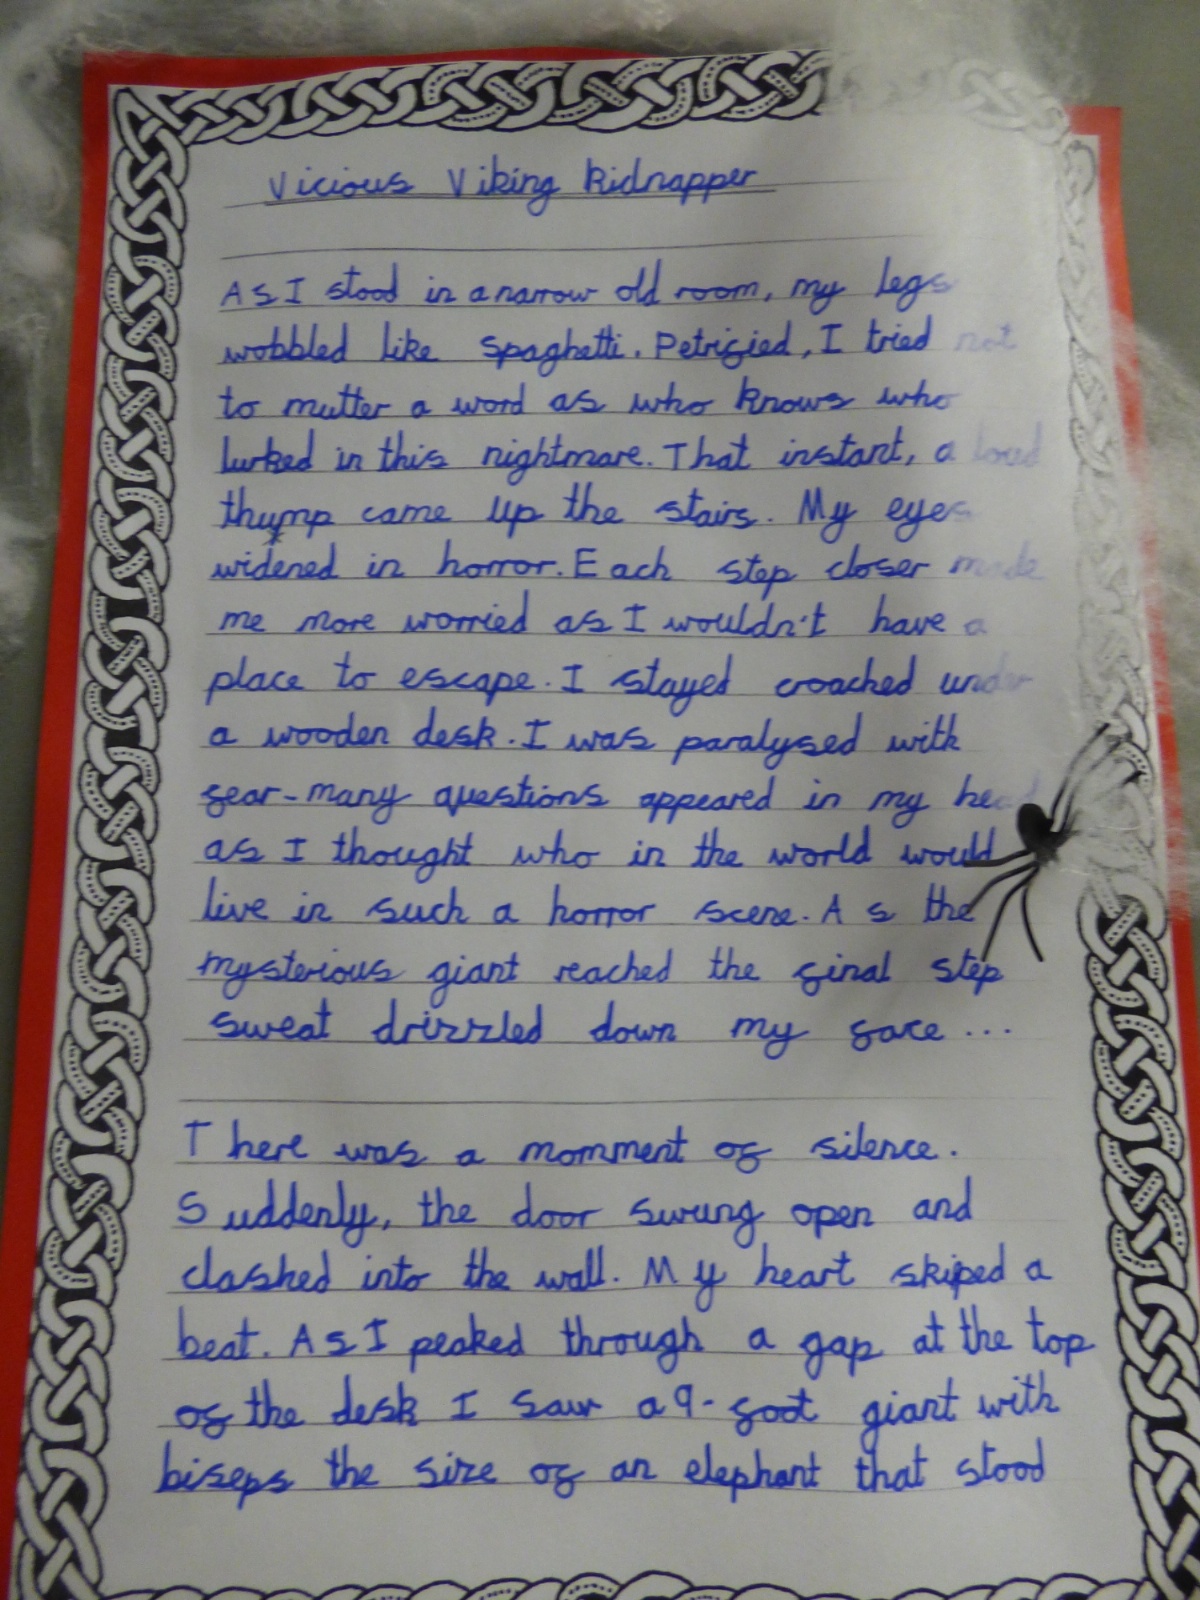 Vicious Viking Kidnapper
As I stood in a narrow old room, my legs
wobbled like spaghetti. Petrified, I tried not
to mutter a word as who knows who
lurked in this nightmare. That instant, a loud
thump came up the stairs. My eyes
widened in horror. Each step closer made
me more worried as I wouldn't have a
place to escape. I stayed croached under
a wooden desk. I was paralysed with
fear-many questions appeared in my head
as I thought who in the world would
live in such a horror scene. As the
mysterious giant reached the final step
sweat drizzled down my face ...
There was a momment of silence.
Suddenly, the door swung open and
clashed into the wall. My heart skiped a
beat. As I peaked through a gap at the top
of the desk I saw a 9-foot giant with
biseps the size of an elephant that stood